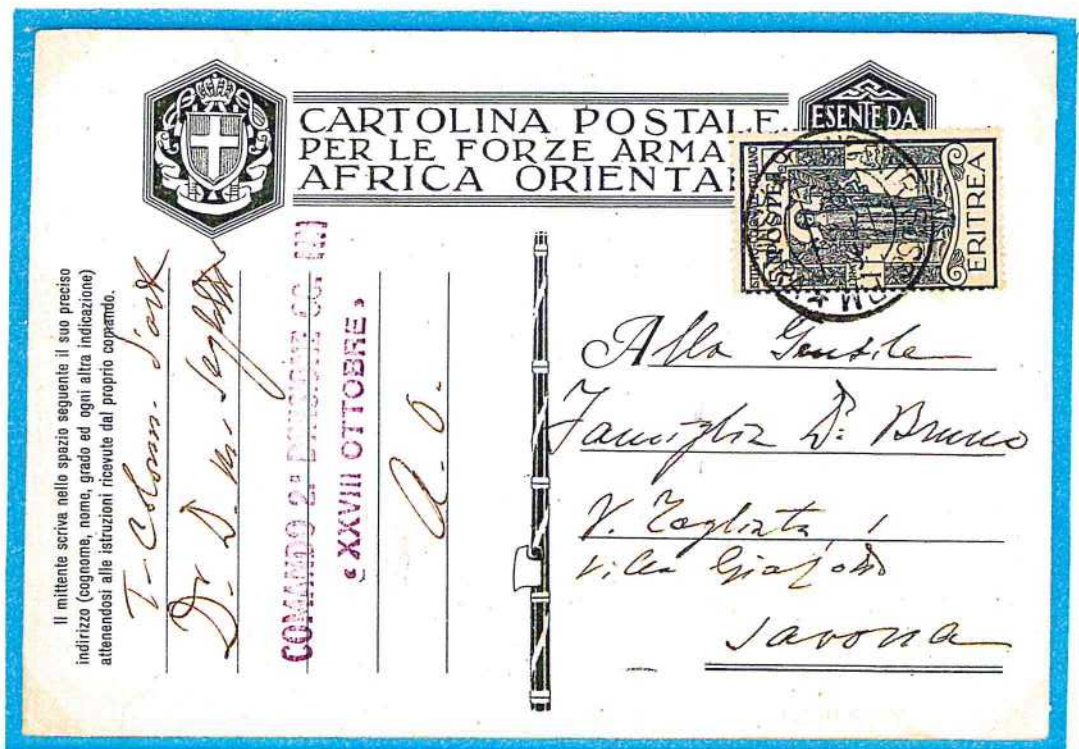 CARTOLINA POSTALE
PER LE FORZE ARMA
AFRICA ORIENTA
ESENTE DA
ERITREA
Il mittente scriva nello spazio seguente il suo preciso
indirizzo (cognome, nome, grado ed ogni altra indicazione)
attenendosi alle istruzioni ricevute dal proprio comando.
COMANDO 2ª DIVISIONE CC. NN
« XXVIII OTTOBRE »
A. O.
Alla Gentile
Famiglia Dr Bruno
V.
Villa
Savona